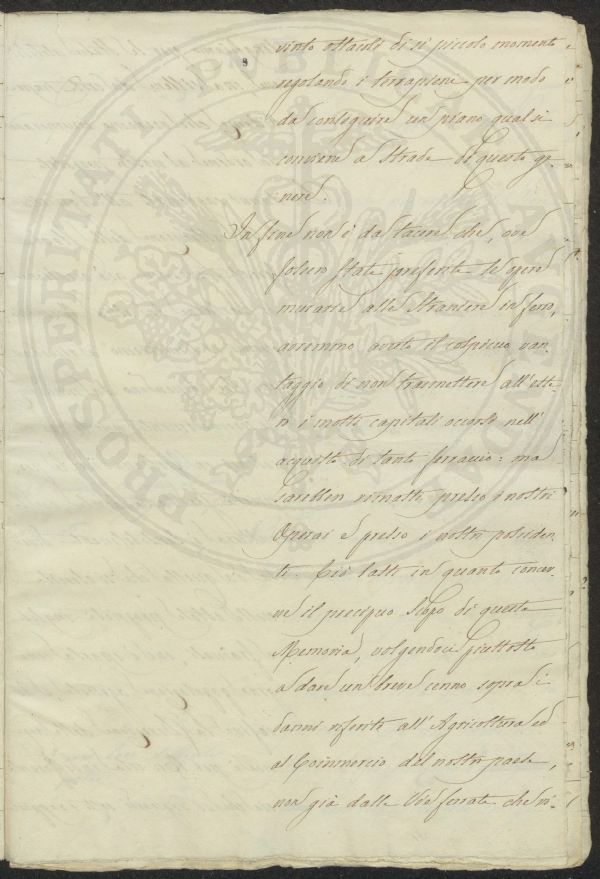 vinto ostacolo di sì piccolo momento
regolando i terrapieni per modo
da conseguire un piano qual si
conviene a Strade di questo ge-
nere.
In fine non è da tacere che, ove
fossero state preferite le opere
murarie alle straniere in ferro,
avremmo avuto il cospicuo van-
taggio di non trasmettere all'este-
ro i molti capitali occorsi nell'
acquisto di tanto ferraccio: ma
sarebber rimasti presso i nostri
Operai e presso i nostri possiden-
ti. Ciò basti in quanto concer-
ne il precipuo Scopo di questa
Memoria, volgendoci piuttosto
a dare un breve cenno sopra i
danni riferiti all'Agricoltura ed
al Commercio del nostro paese,
non già dalle Vie ferrate che vi-
PROSPERITATI PUBLICAE AUGENDAE